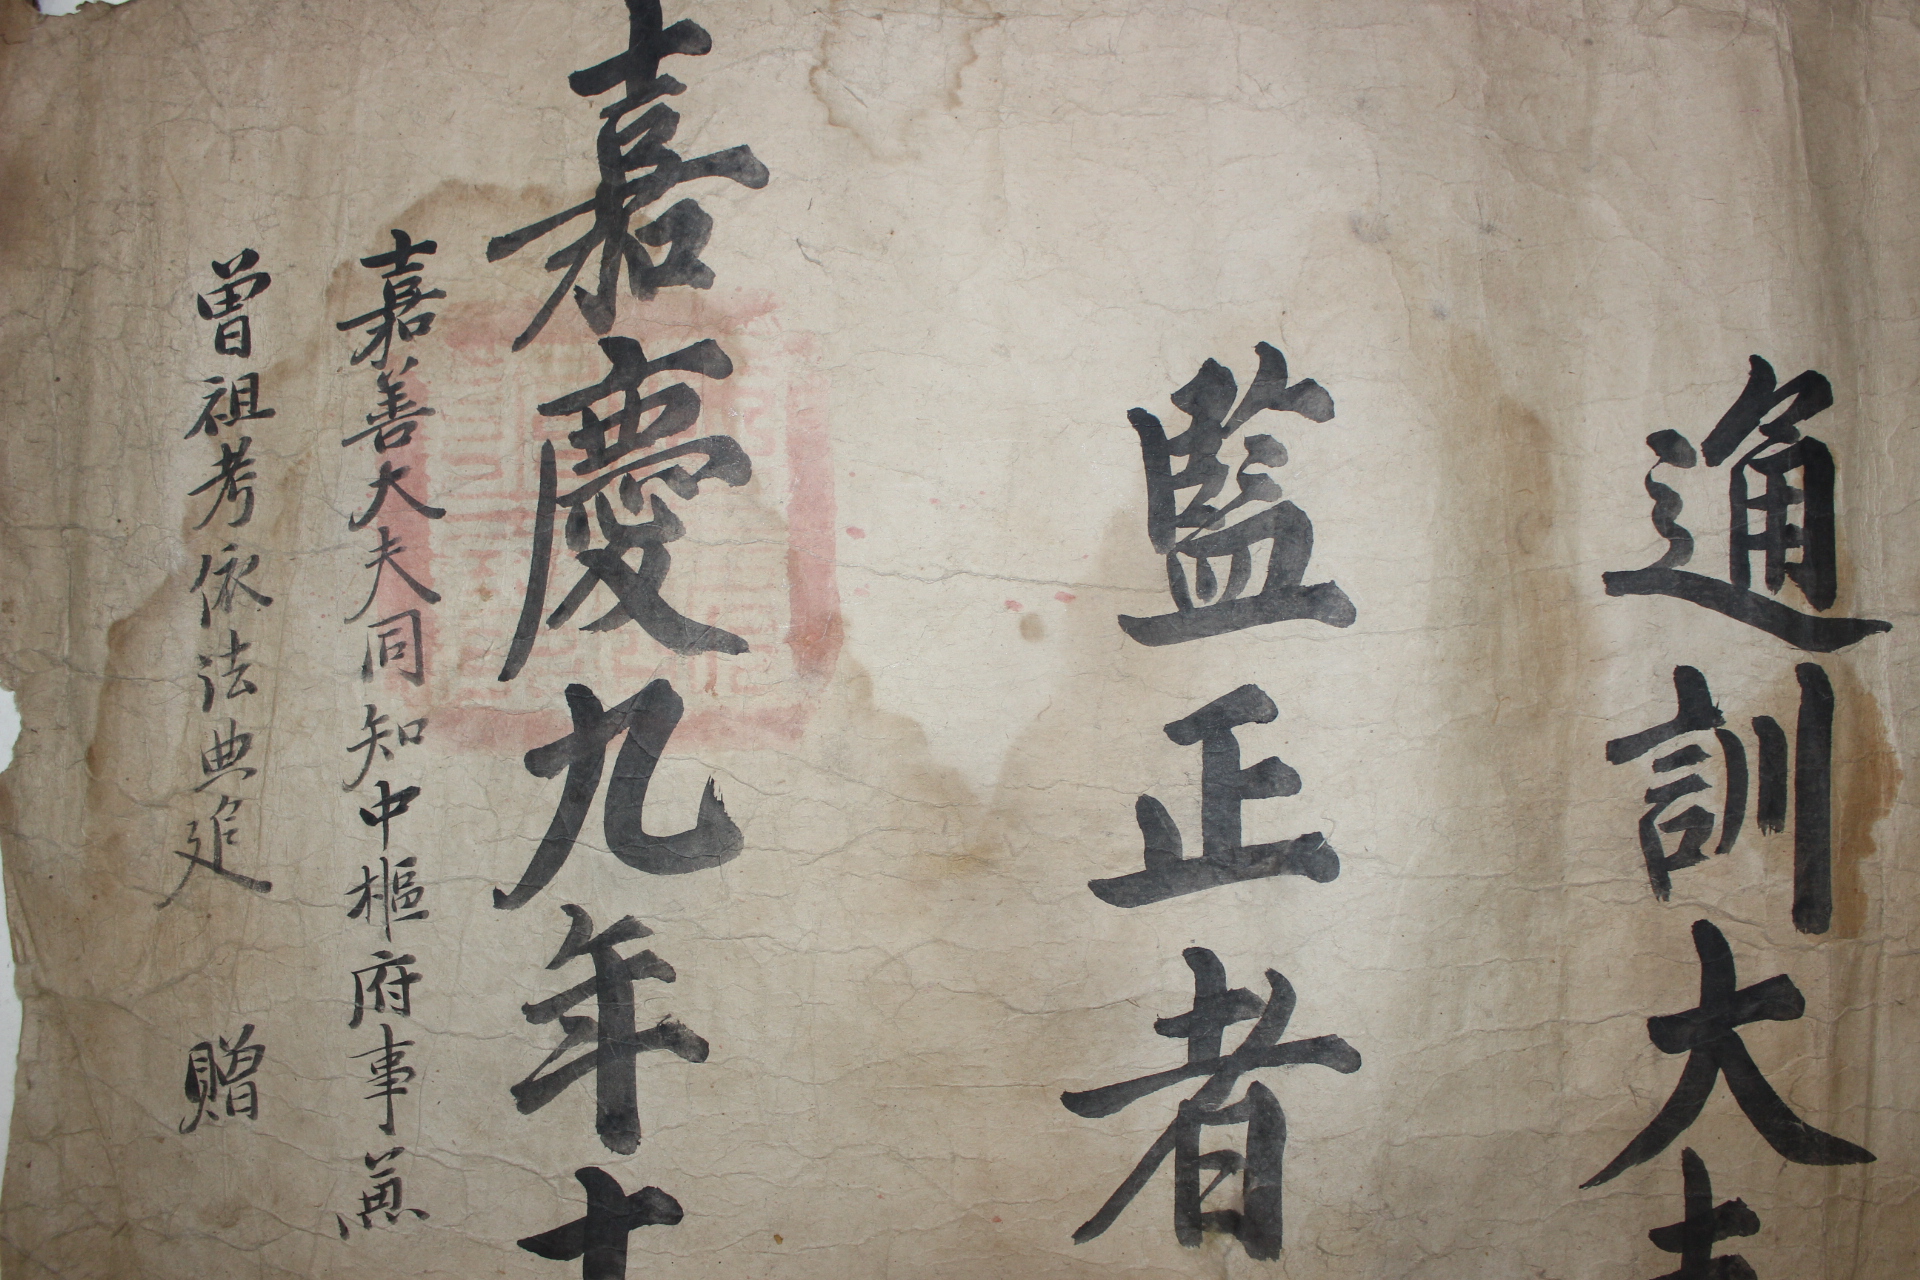 通訓大夫
監正者
嘉慶九年十
嘉善大夫同知中樞府事兼
曾祖考依法典追 贈